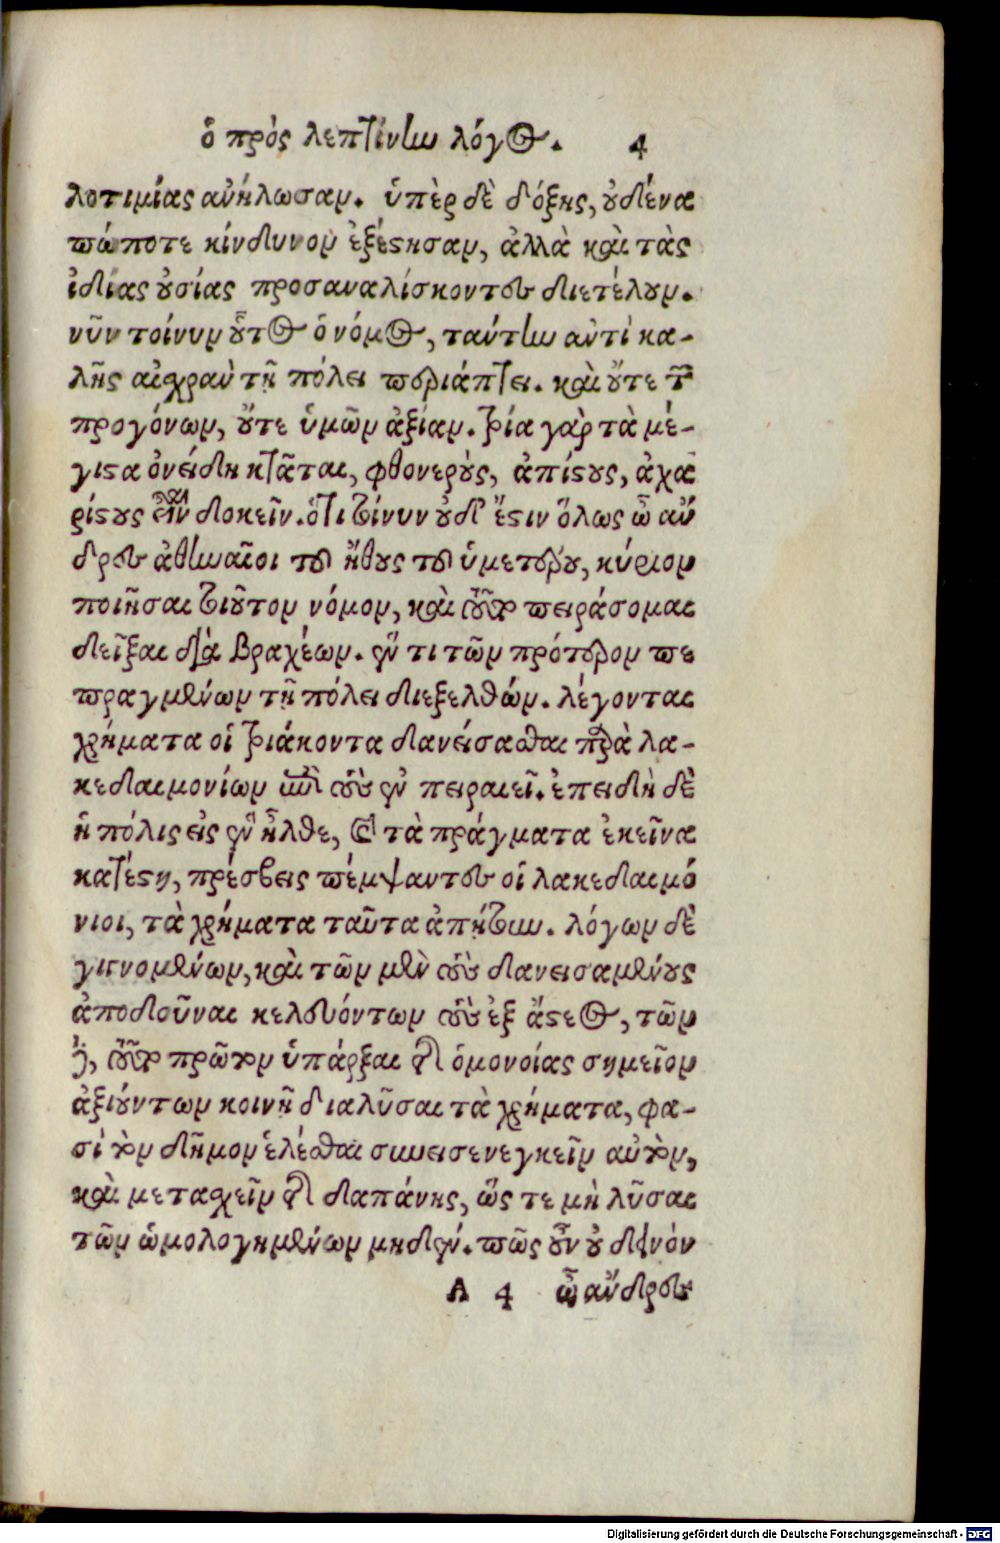 ὁ πρὸς λεπτίνην λόγος. 4
λοτιμίας ἀνήλωσαν. ὑπὲρ δὲ δόξης, οὐδένα
πώποτε κίνδυνον ἐξέστησαν, ἀλλὰ καὶ τὰς
ἰδίας οὐσίας προσαναλίσκοντες διετέλουν.
νῦν τοίνυν οὗτος ὁ νόμος, ταύτην ἀντὶ κα-
λῆς αἰσχρὰν τῇ πόλει περιάπτει. καὶ οὔτε τῶν
προγόνων, οὔτε ὑμῶν ἀξίαν. τρία γὰρ τὰ μέ-
γιστα ὀνείδη κτᾶται, φθονεροὺς, ἀπίστους, ἀχα
ρίστους εἶναι δοκεῖν. ὅτι τοίνυν οὐδ' ἔστιν ὅλως ὦ ἄν
δρες ἀθηναῖοι τοῦ ἤθους τοῦ ὑμετέρου, κύριον
ποιῆσαι τοιοῦτον νόμον, καὶ τοῦτο πειράσομαι
δεῖξαι διὰ βραχέων. ἕν τι τῶν πρότερον πε
πραγμένων τῇ πόλει διεξελθών. λέγονται
χρήματα οἱ τριάκοντα δανείσασθαι παρὰ λα-
κεδαιμονίων ἐπὶ τοὺς ἐν πειραιεῖ. ἐπειδὴ δὲ
ἡ πόλις εἰς ἓν ἦλθε, καὶ τὰ πράγματα ἐκεῖνα
κατέστη, πρέσβεις πέμψαντες οἱ λακεδαιμό
νιοι, τὰ χρήματα ταῦτα ἀπῄτουν. λόγων δὲ
γιγνομένων, καὶ τῶν μὲν τοὺς δανεισαμένους
ἀποδοῦναι κελευόντων τοὺς ἐξ ἄστεος, τῶν
δὲ, τοῦτο πρῶτον ὑπάρξαι τῆς ὁμονοίας σημεῖον
ἀξιούντων κοινῇ διαλῦσαι τὰ χρήματα, φα-
σὶ τὸν δῆμον ἑλέσθαι συνεισενεγκεῖν αὐτὸν,
καὶ μετασχεῖν τῆς δαπάνης, ὥς τε μὴ λῦσαι
τῶν ὡμολογημένων μηδέν. πῶς οὖν οὐ δεινὸν
A 4 ὦ ἄνδρες
Digitalisierung gefördert durch die Deutsche Forschungsgemeinschaft - DFG